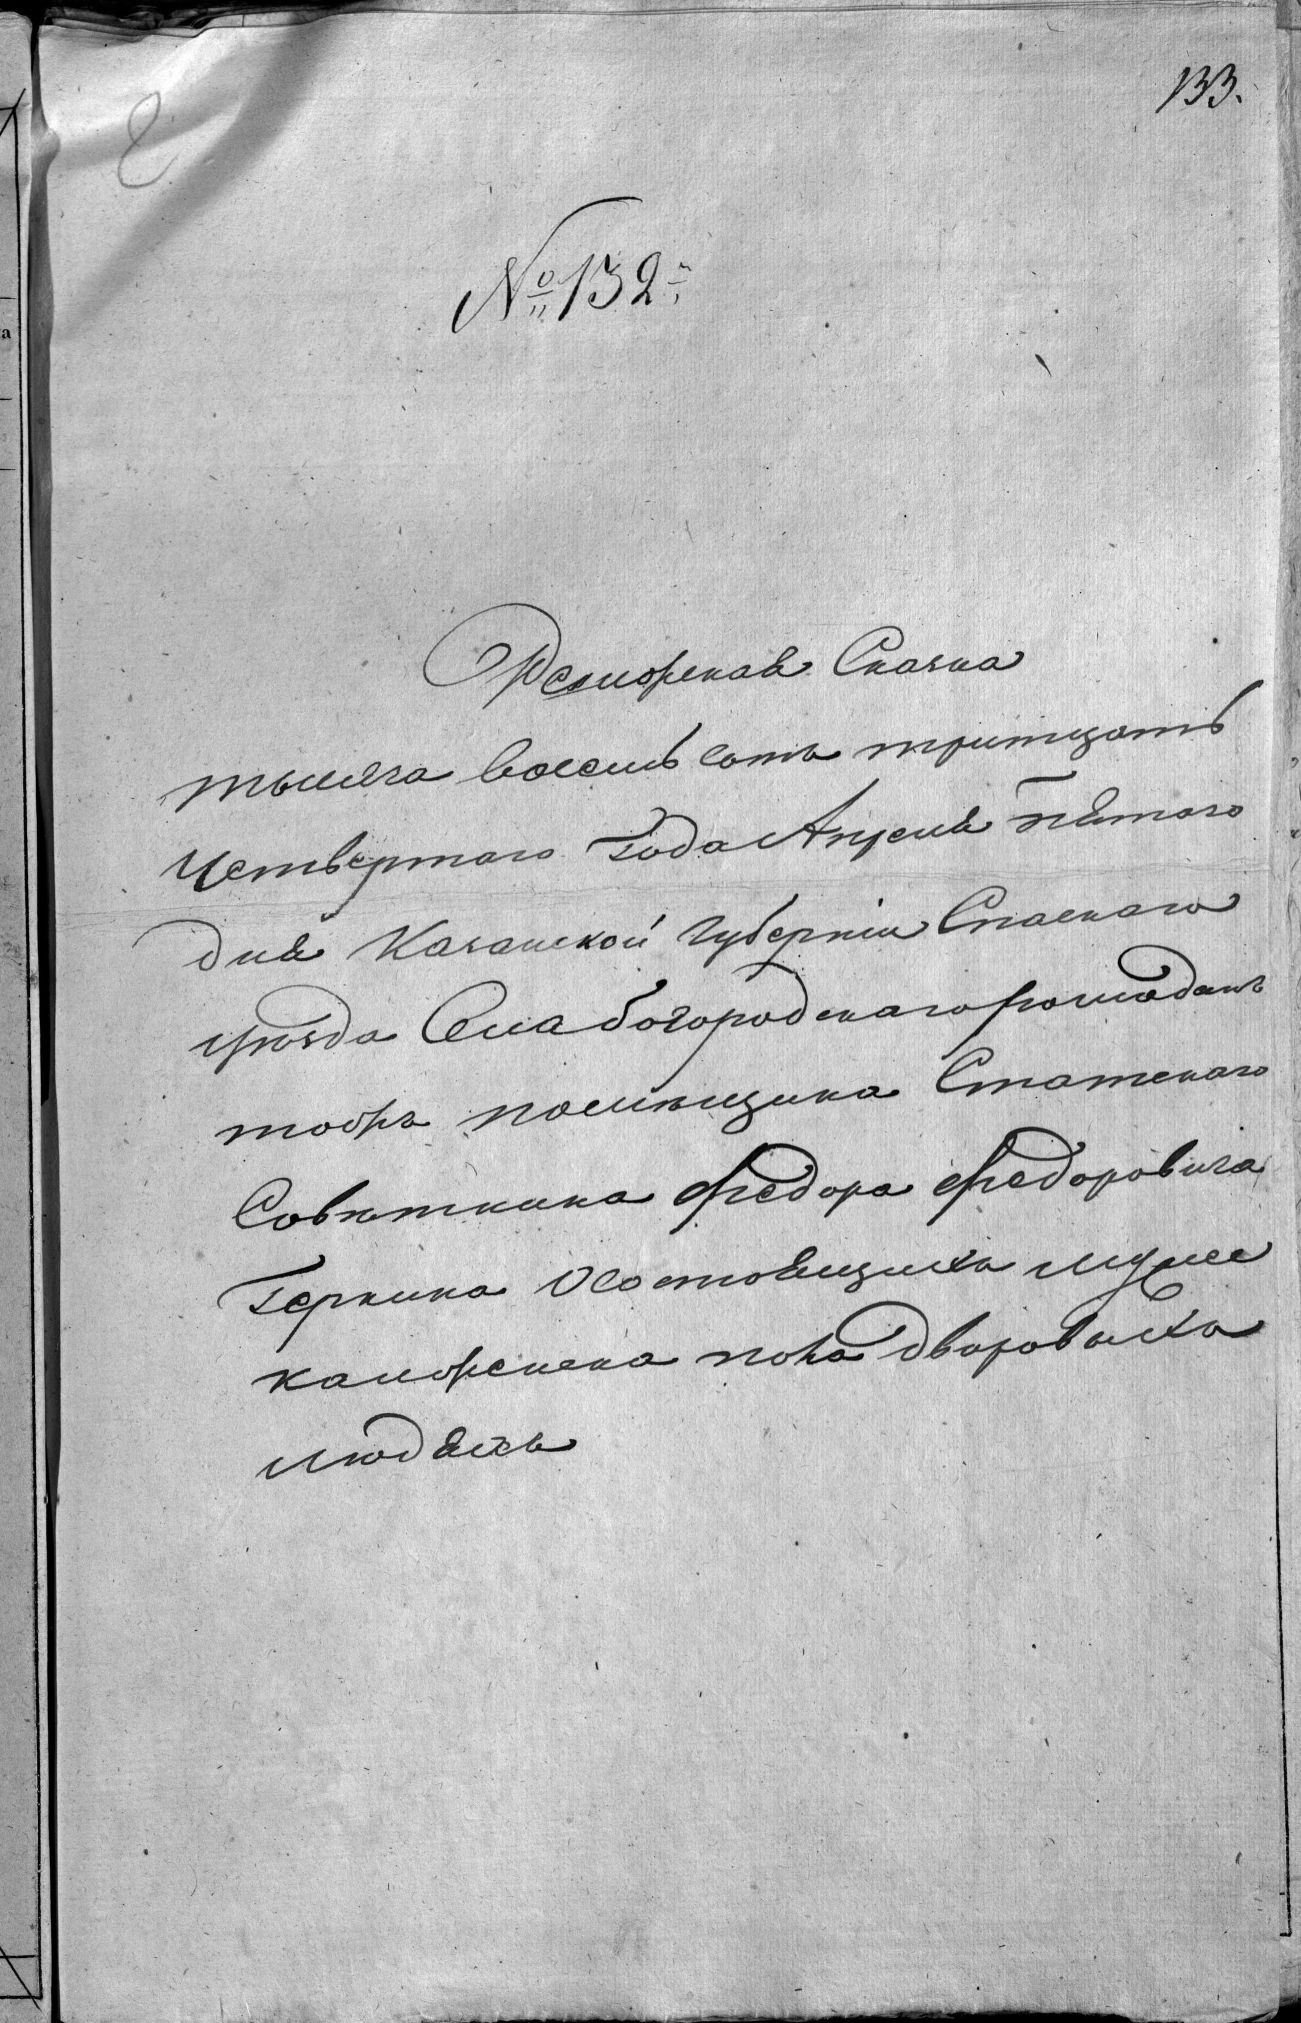 133.
№ 132й
Ревизская Сказка
тысяча восемь сотъ тритцать
Четвертаго Года Апреля пятаго
дня Казанской Губернiи Спаскаго
уѣзда Села богородскаго ромодань
тожъ помѣщика Статскаго
Совѣтника Федора Федоровича
Геркина Состоящихъ
дворовыхъ
людяхъ